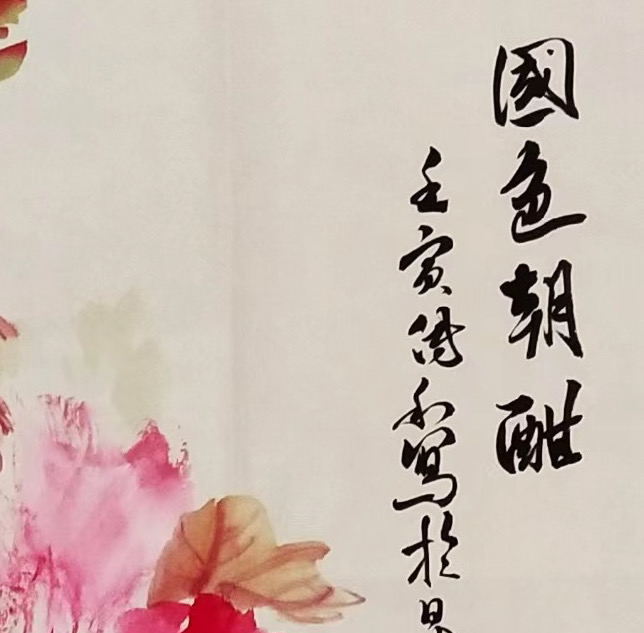 國色朝酣
壬寅傳永寫於